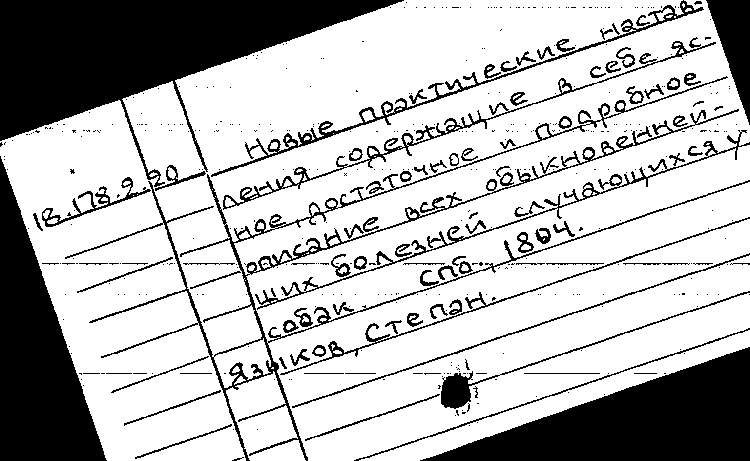 Новые практические настав-
18.178.2.20 ления содержащие в себе яс-
ное, достаточное и подробное
описание всех обыкновенней-
ших болезней случающихся у
собак. СПб., 1804.
Языков, Степан.